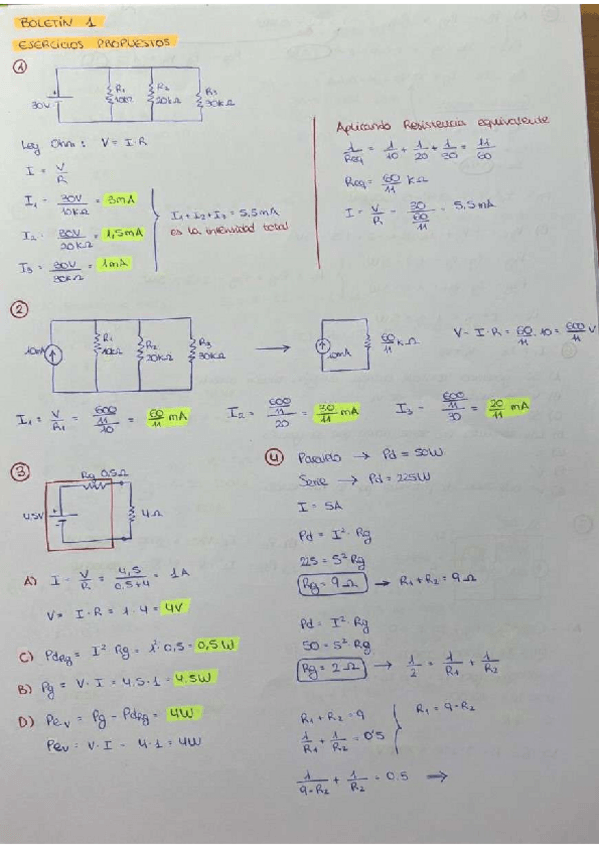 BOLETÍN 1
EJERCICIOS PROPUESTOS
①
30V
R1 10kΩ
R2 20kΩ
R3 30kΩ
Ley Ohm: V = I·R
I = V/R
I1 = 30V/10kΩ = 3mA
I2 = 30V/20kΩ = 1,5mA
I3 = 30V/30kΩ = 1mA
I1 + I2 + I3 = 5,5mA
es la intensidad total
Aplicando Resistencia equivalente
1/Req = 1/10 + 1/20 + 1/30 = 11/60
Req = 60/11 kΩ
I = V/R = 30/(60/11) = 5,5mA
②
10mA
R1 10kΩ
R2 20kΩ
R3 30kΩ
→
10mA
60/11 kΩ
V = I·R = 60/11 · 10 = 600/11 V
I1 = V/R1 = (600/11)/10 = 60/11 mA
I2 = (600/11)/20 = 30/11 mA
I3 = (600/11)/30 = 20/11 mA
③
Rg 0,5Ω
4,5V
4Ω
A) I = V/R = 4,5/(0,5+4) = 1A
V = I·R = 1·4 = 4V
C) PdRg = I² Rg = 1²·0,5 = 0,5W
B) Pg = V·I = 4,5·1 = 4,5W
D) = Pg - PdRg = 4W
= V·I = 4·1 = 4W
④ Paralelo → Pd = 50W
Serie → Pd = 225W
I = 5A
Pd = I² Rg
225 = 5² Rg
Rg = 9Ω → R1 + R2 = 9Ω
Pd = I² Rg
50 = 5² Rg
Rg = 2Ω → 1/2 = 1/R1 + 1/R2
R1 + R2 = 9
1/R1 + 1/R2 = 0'5
R1 = 9-R2
1/(9-R2) + 1/R2 = 0.5 ⇒